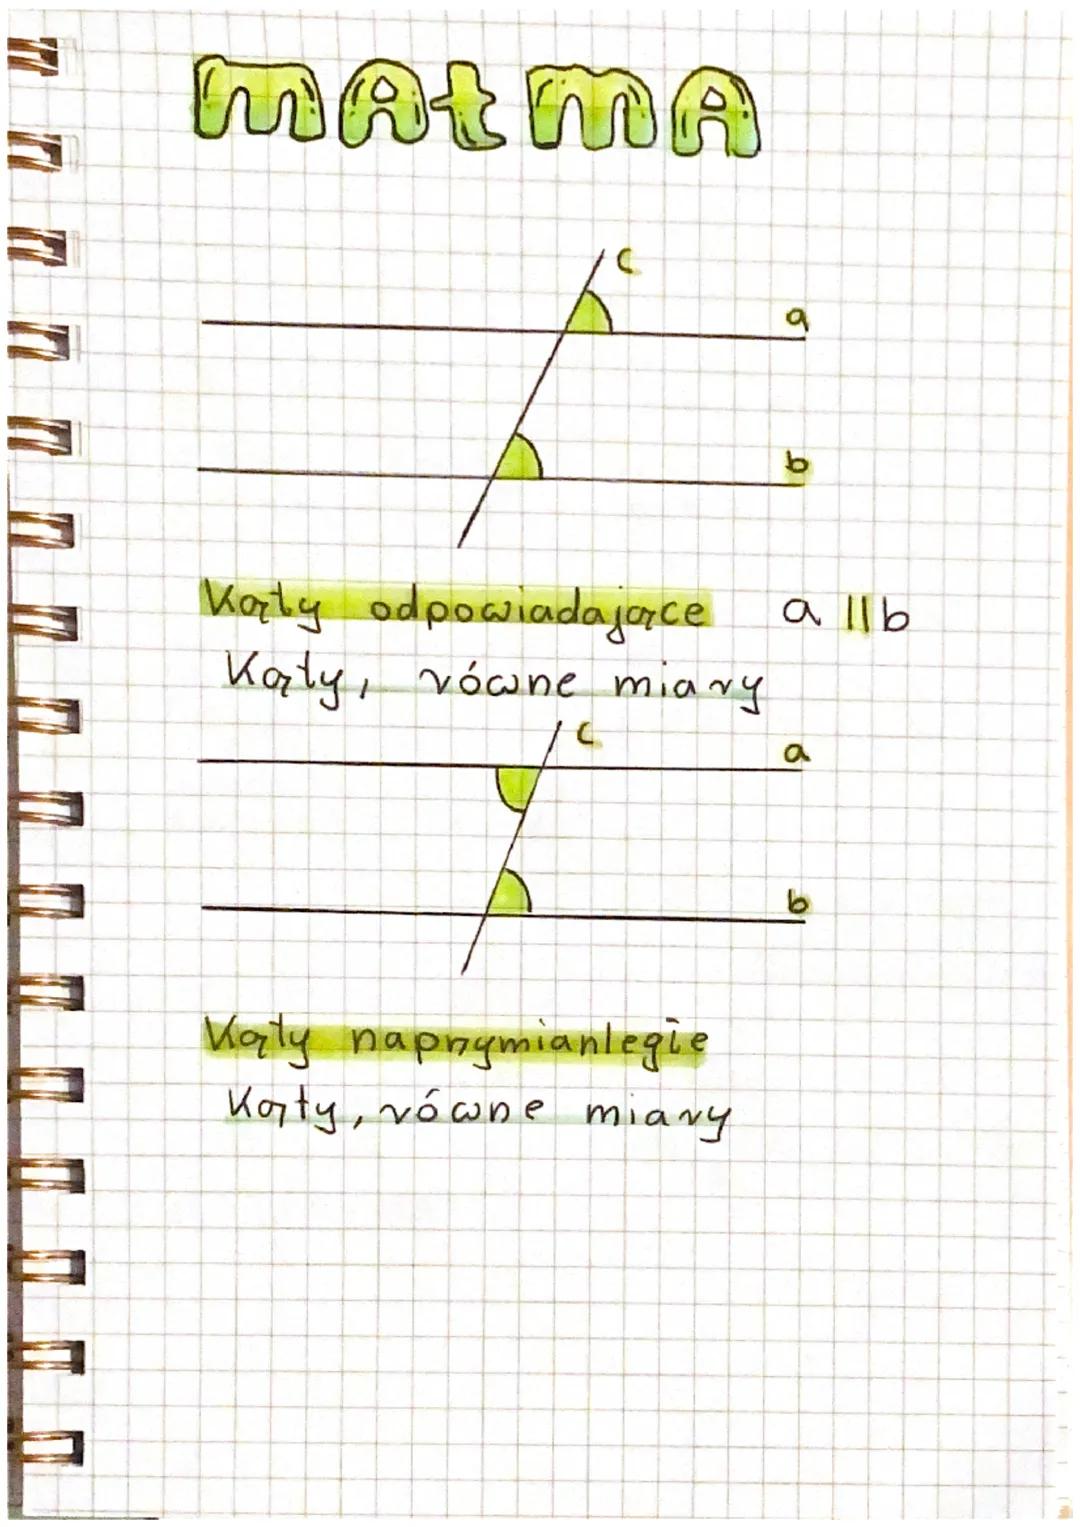 MATMA
c
a
b
Kąty odpowiadające a || b
Kąty, równe miary
c
a
b
Kąty naprzymianlegie
Kąty, równe miary